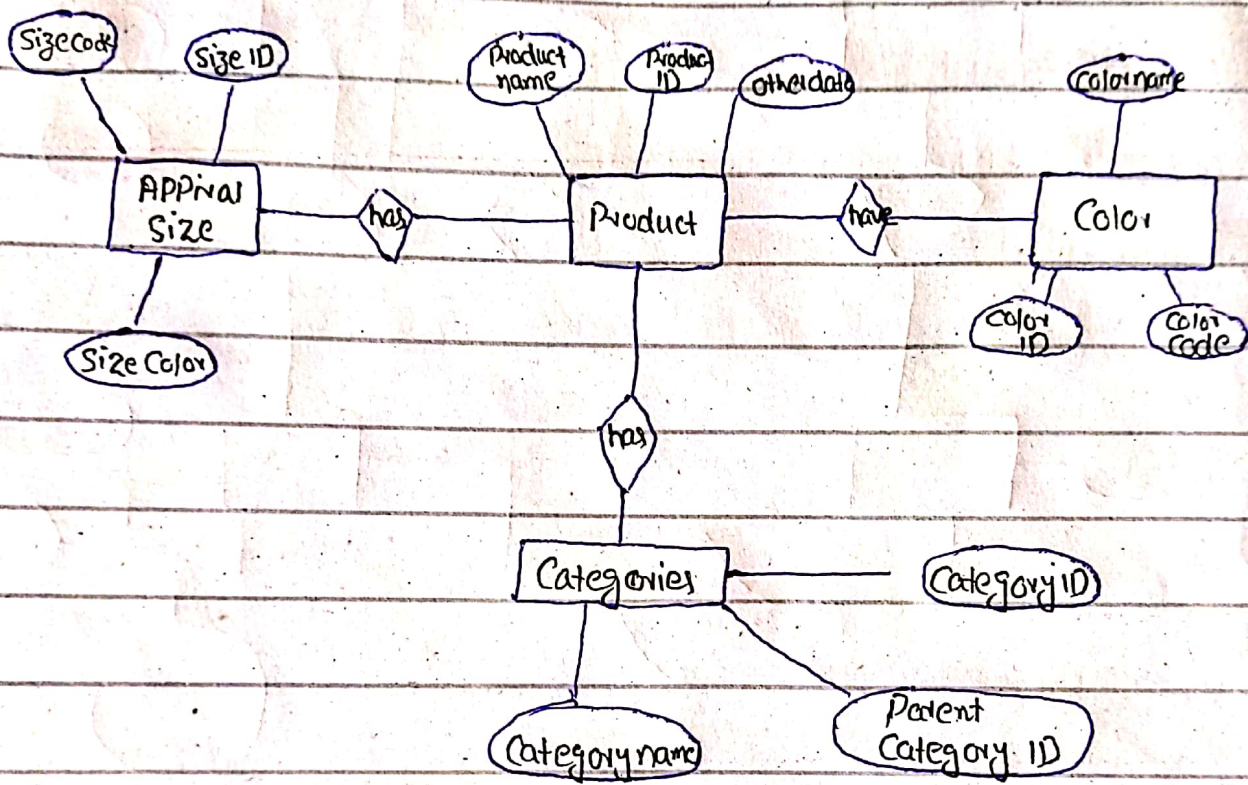 SizeCode
Size ID
Product
name
Product
ID
otherdata
Colorname
Size
has
Product
have
Color
Color
ID
Color
code
Size Color
has
Categories
Category ID
Category name
Parent
Category ID